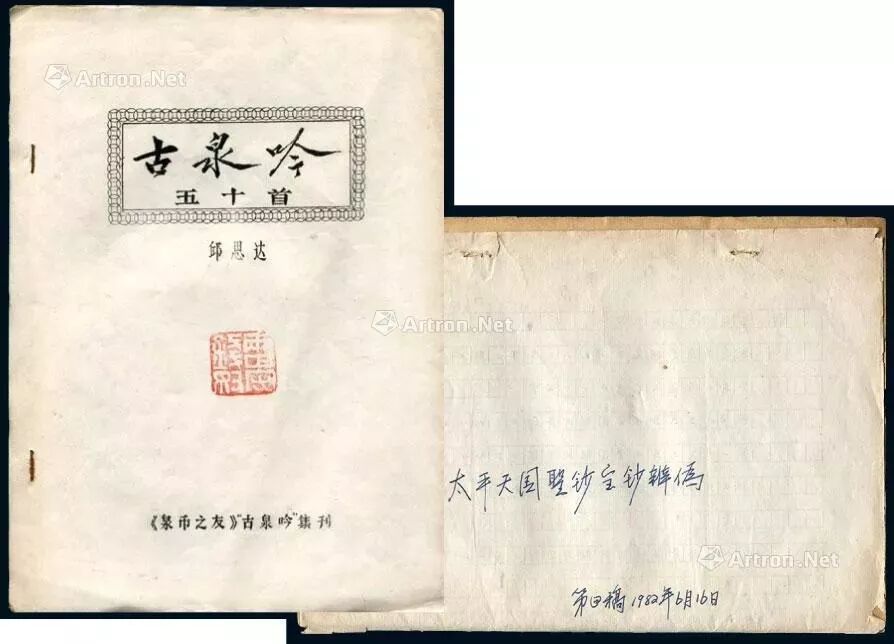 Artron.Net
古泉吟
五十首
邱思达
Artron.Net
《泉币之友》“古泉吟”集刊
太平天国聖钞宝钞辨偽
第四稿 1982年6月16日
Artron.Net